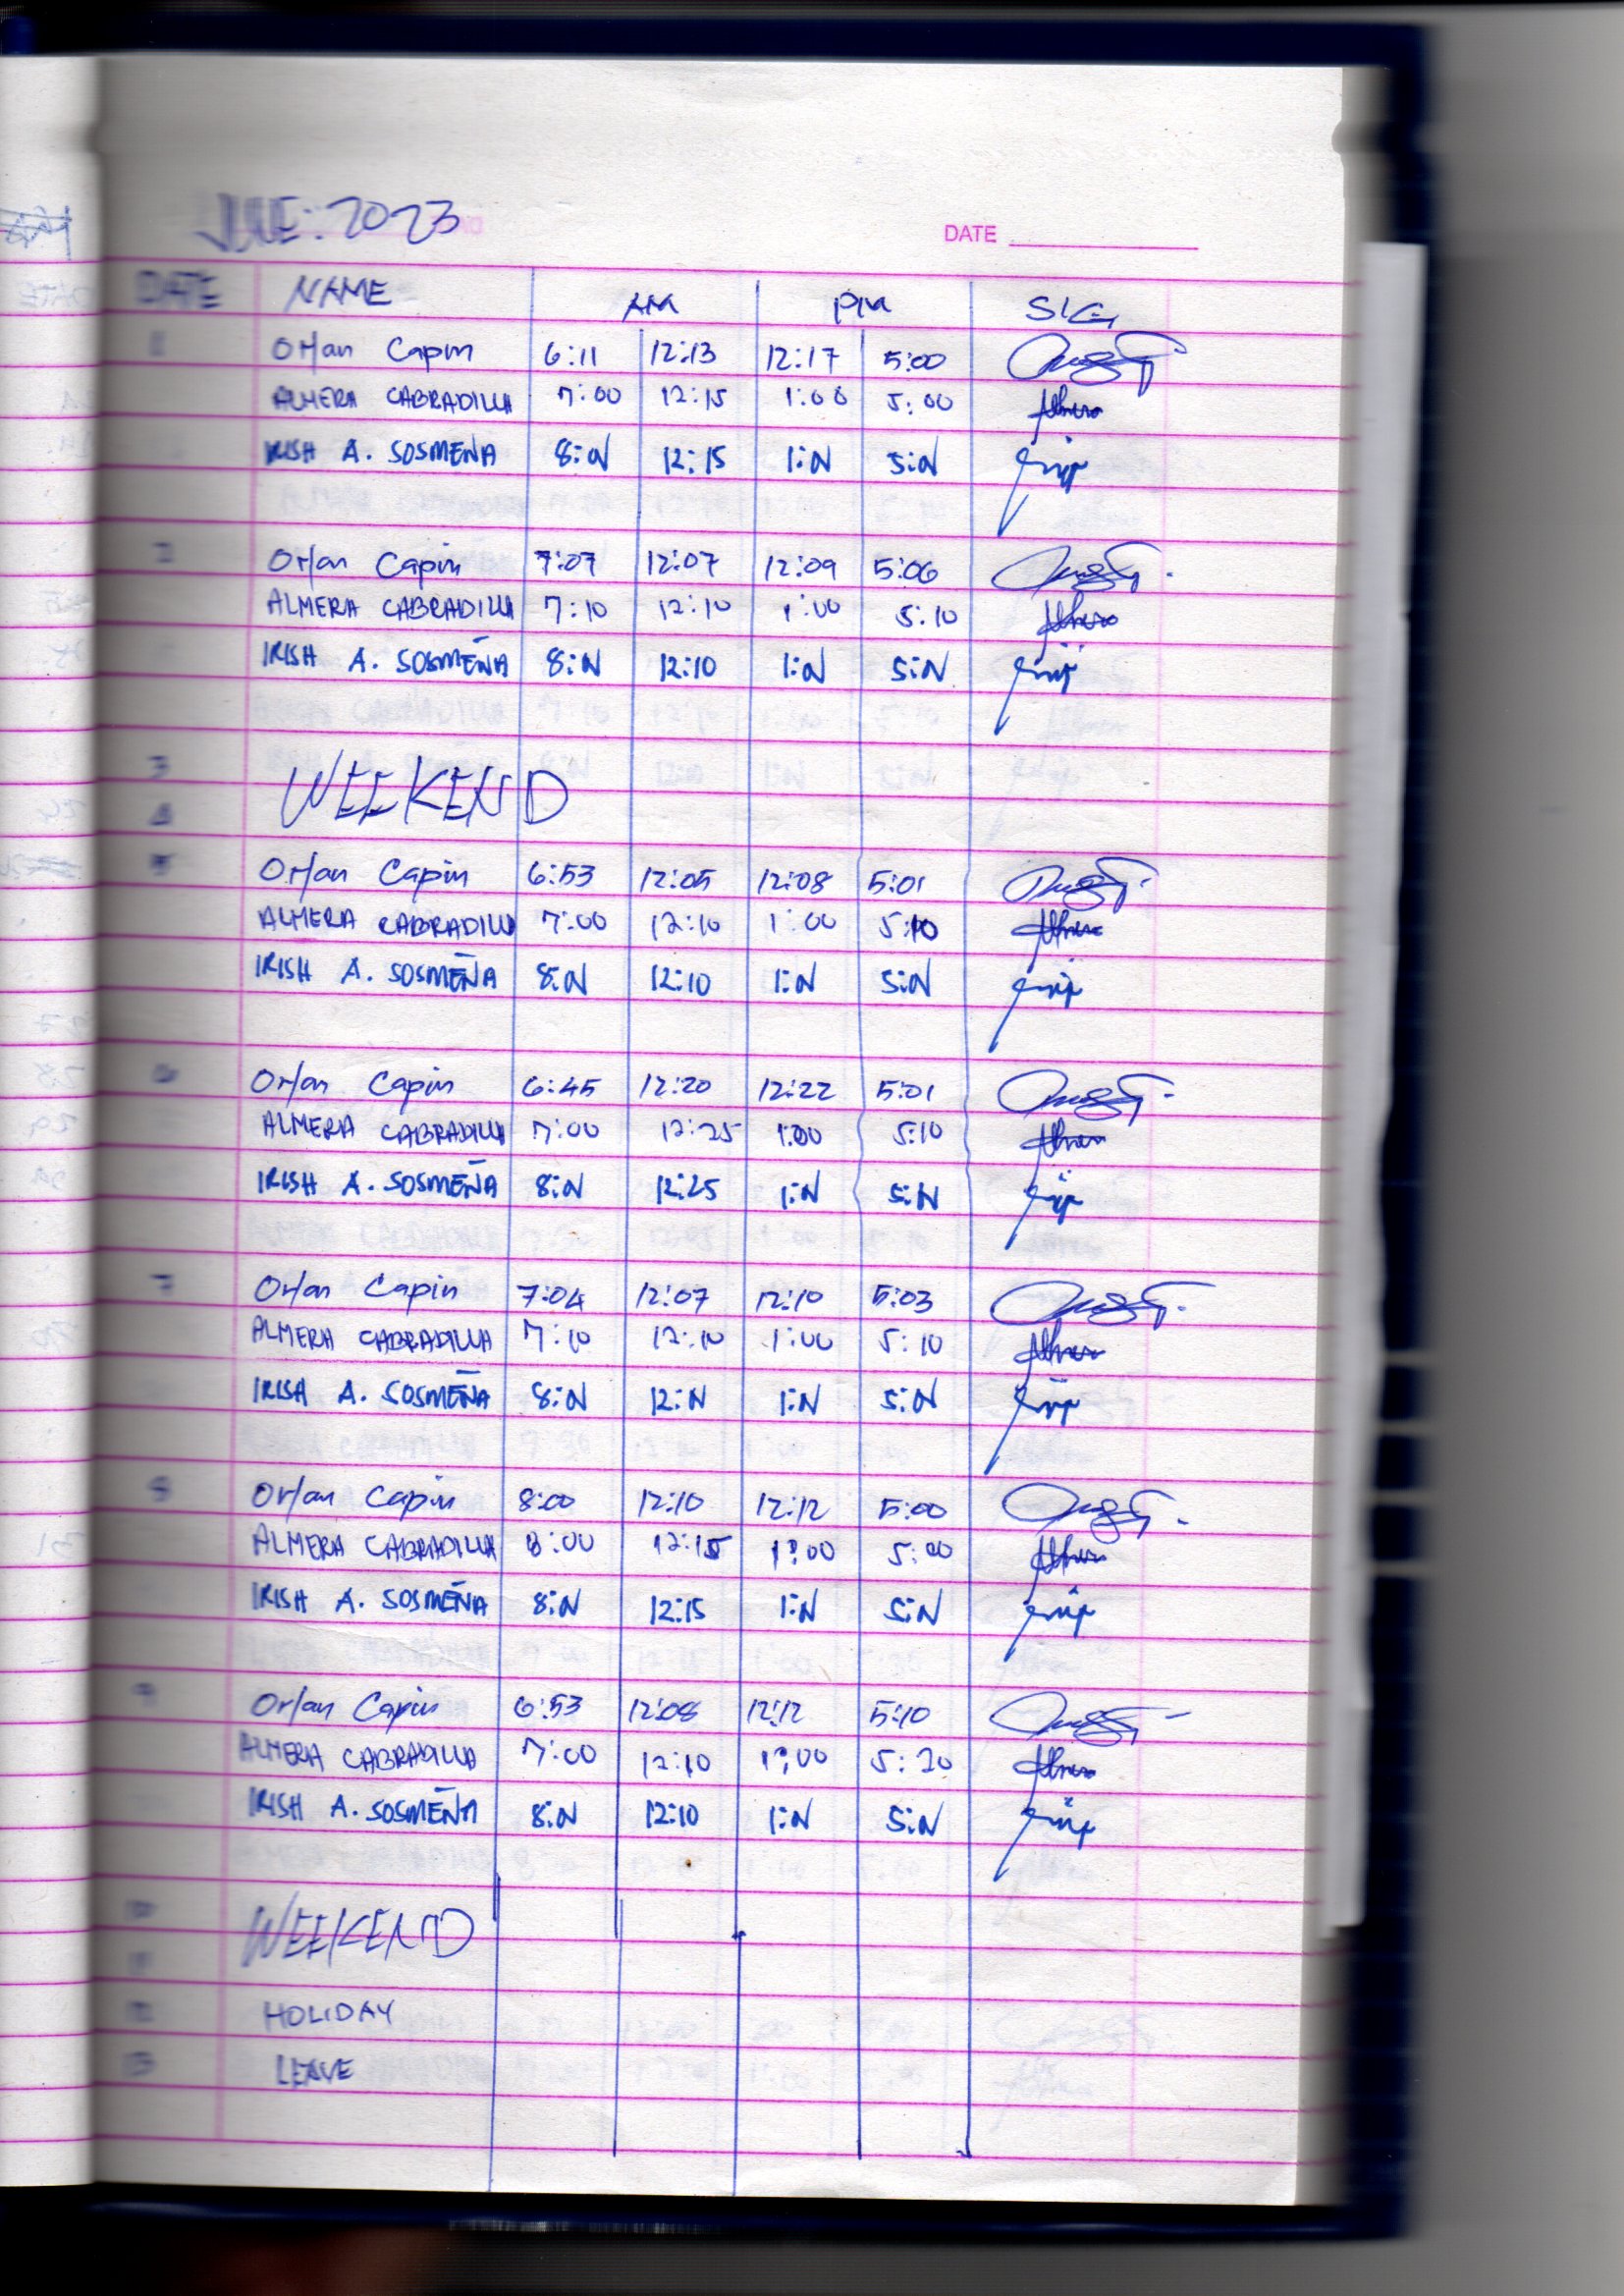 JUNE: 2023
DATE
DATE NAME AM PM SIG
1 Orlan Capin 6:11 12:13 12:17 5:00
ALMERA CABRADILLA 7:00 12:15 1:00 5:00
IRISH A. SOSMEÑA 8:N 12:15 1:N 5:N
2 Orlan Capin 7:07 12:07 12:09 5:06
ALMERA CABRADILLA 7:10 12:10 1:00 5:10
IRISH A. SOSMEÑA 8:N 12:10 1:N 5:N
3 WEEKEND
4
5 Orlan Capin 6:53 12:05 12:08 5:01
ALMERA CABRADILLA 7:00 12:10 1:00 5:10
IRISH A. SOSMEÑA 8:N 12:10 1:N 5:N
6 Orlan Capin 6:45 12:20 12:22 5:01
ALMERA CABRADILLA 7:00 12:25 1:00 5:10
IRISH A. SOSMEÑA 8:N 12:25 1:N 5:N
7 Orlan Capin 7:04 12:07 12:10 5:03
ALMERA CABRADILLA 7:10 12:10 1:00 5:10
IRISH A. SOSMEÑA 8:N 12:N 1:N 5:N
8 Orlan Capin 8:00 12:10 12:12 5:00
ALMERA CABRADILLA 8:00 12:15 1:00 5:00
IRISH A. SOSMEÑA 8:N 12:15 1:N 5:N
9 Orlan Capin 6:53 12:08 12:12 5:10
ALMERA CABRADILLA 7:00 12:10 1:00 5:20
IRISH A. SOSMEÑA 8:N 12:10 1:N 5:N
10 WEEKEND
11
12 HOLIDAY
13 LEAVE